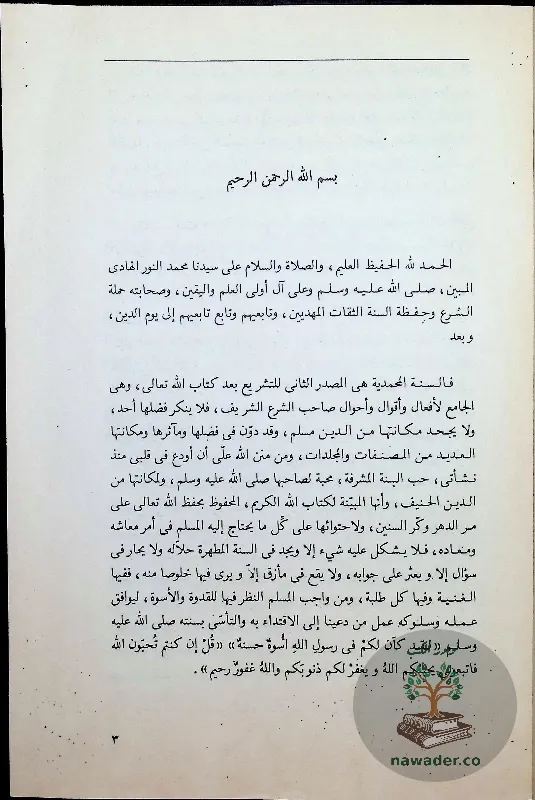 بسم الله الرحمن الرحيم
الحمد لله الحفيظ العليم، والصلاة والسلام على سيدنا محمد النور الهادى
المبين، صلى الله عليه وسلم وعلى آل أولى العلم واليقين، وصحابته حملة
الشرع وحفظة السنة الثقات المهديين، وتابعيهم وتابع تابعيهم إلى يوم الدين،
وبعد
فالسنة المحمدية هى المصدر الثانى للتشريع بعد كتاب الله تعالى، وهى
الجامع لأفعال وأقوال وأحوال صاحب الشرع الشريف، فلا ينكر فضلها أحد،
ولا يجحد مكانتها من الدين مسلم، وقد دوّن فى فضلها ومآثرها ومكانتها
العديد من المصنفات والمجلدات، ومن منن الله علّى أن أودع فى قلبى منذ
نشأتى، حب السنة المشرفة، محبة لصاحبها صلى الله عليه وسلم، ولمكانتها من
الدين الحنيف، وأنها المبيّنة لكتاب الله الكريم، المحفوظ بحفظ الله تعالى على
مر الدهر وكّر السنين، ولاحتوائها على كُّل ما يحتاج إليه المسلم فى أمر معاشه
ومعاده، فلا يشكل عليه شىء إلا ويجد فى السنة المطهرة حلاّله ولا يحار فى
سؤال إلا ويعثر على جوابه، ولا يقع فى مأزق إلاّ ويرى فيها خلوصا منه، ففيها
الغنية وفيها كل طلبة، ومن واجب المسلم النظر فيها للقدوة والأسوة، ليوافق
عمله وسلوكه عمل من دعينا إلى الاقتداء به والتأسّى بسنته صلى الله عليه
وسلم «لقد كآن لكمْ فى رسولِ اللهِ أسُوةٌ حسنةٌ» «قُلْ إن كنتم تُحبّون اللهَ
فاتبعونى يحببكم اللهُ ويغفرْ لكم ذنوبَكم واللهُ غفورٌ رحيم».
٣
nawader.co